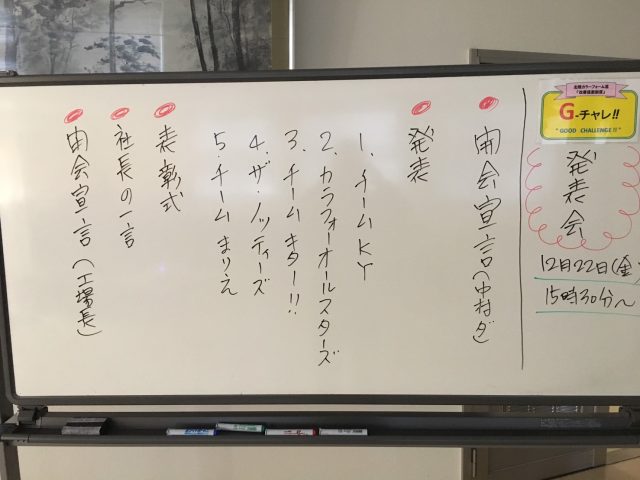 北陸カラーフォーム流
「改善提案制度」
G-チャレ!!
"GOOD CHALLENGE!!"
発表会
12月22日(金)
15時30分～
開会宣言(中村ダ)
発表
1. チームKY
2. カラフォーオールスターズ
3. チームキター!!
4. ザ・ノッティーズ
5. チームまりえ
表彰式
社長の一言
閉会宣言(工場長)